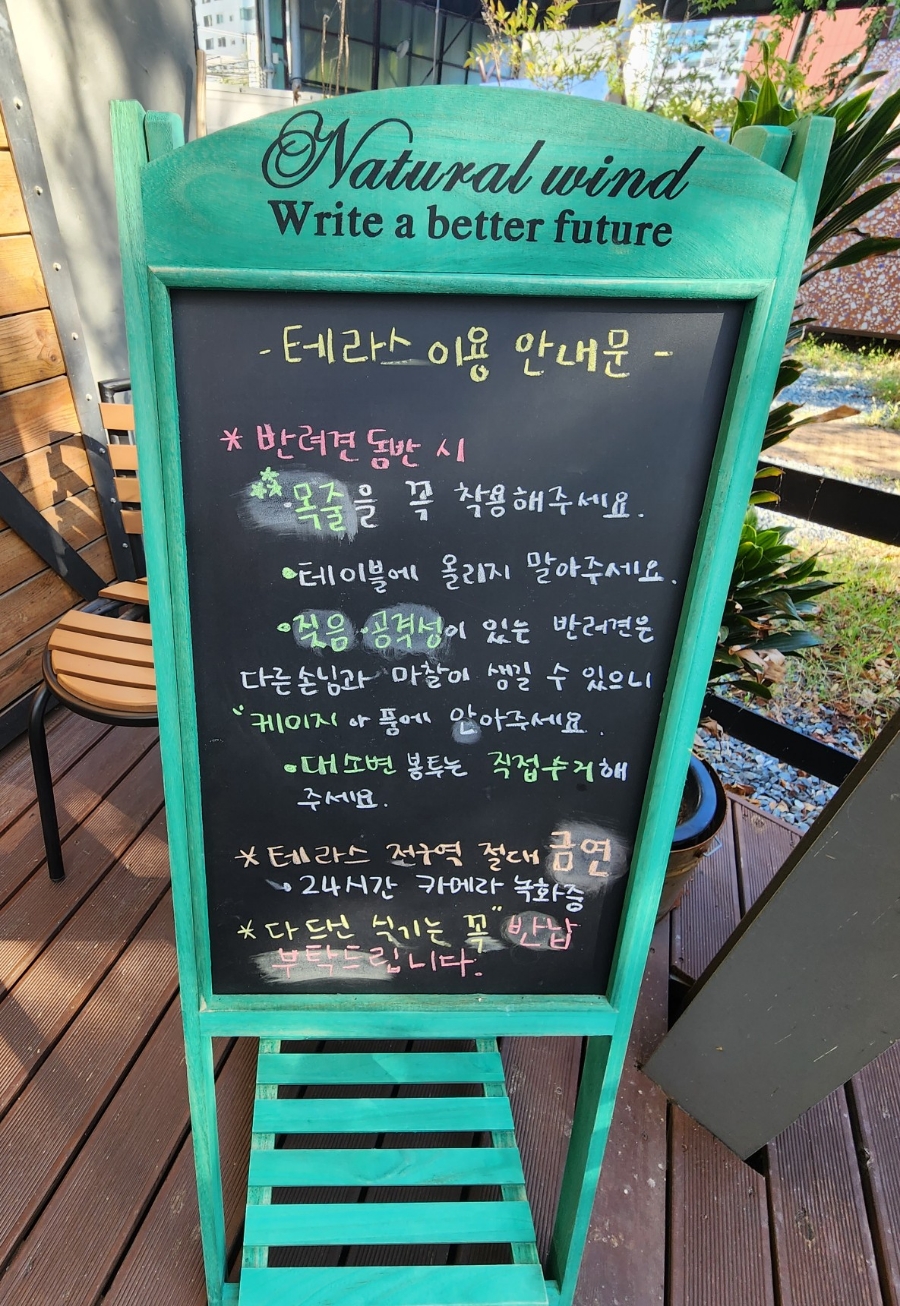 Natural wind
Write a better future
-테라스 이용 안내문-
* 반려견 동반 시
목줄을 꼭 착용해주세요.
•테이블에 올리지 말아주세요.
•짖음•공격성이 있는 반려견은
다른손님과 마찰이 생길 수 있으니
"케이지 아 품에 안아주세요.
•대소변 봉투는 직접수거해
주세요.
*테라스 전구역 절대 금연
24시간 카메라 녹화중
* 다 드신 식기는 꼭" 반납
부탁드립니다.